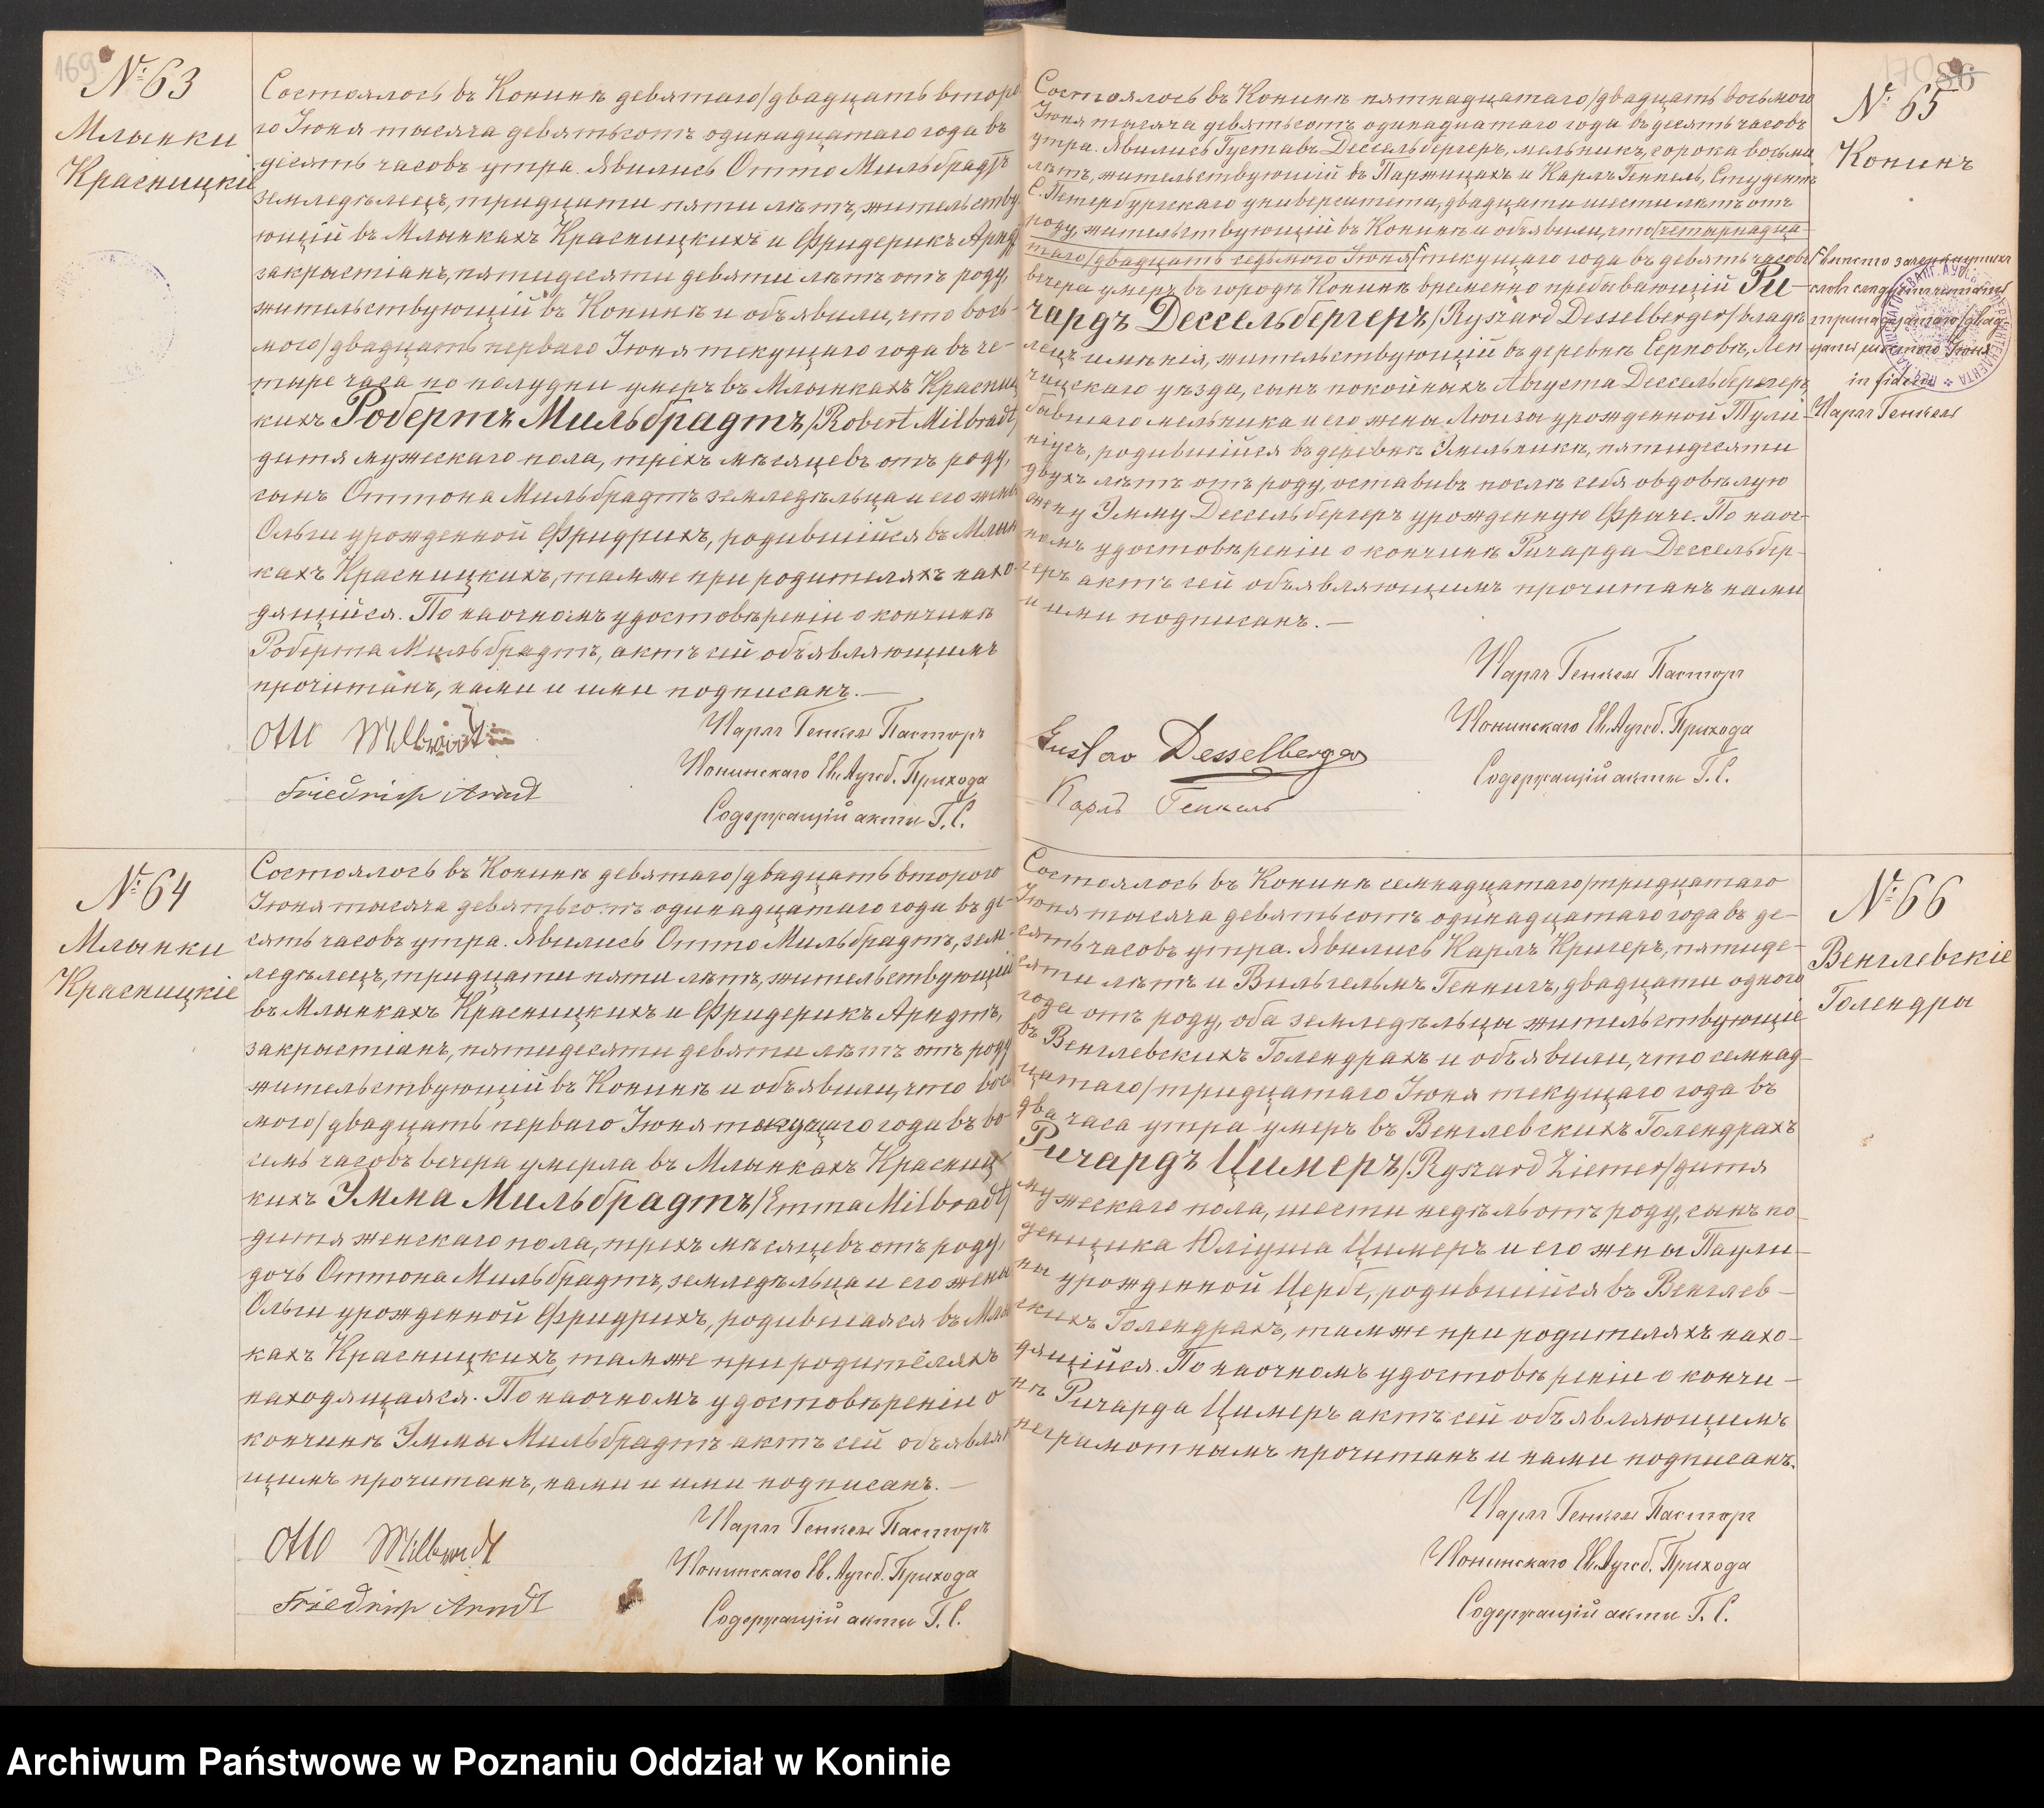 169
№ 63
Млынки
Красницкіе
Состоялось въ Конинѣ девятаго/двадцать второ-
го Іюня тысяча девятьсотъ одинадцатаго года въ
десять часовъ утра. Явились Отто Мильбрадтъ
земледѣлецъ, тридцати пяти лѣтъ, жительству-
ющій въ Млынкахъ Красницкихъ и Фридерикъ Арндтъ
закрыстіанъ, пятидесяти девяти лѣтъ отъ роду,
жительствующій въ Конинѣ и объявили, что вось-
мого/двадцать перваго Іюня текущаго года въ че-
тыре часа по полудни умеръ въ Млынкахъ Красниц-
кихъ Робертъ Мильбрадтъ/Robert Milbradt/
дитя мужескаго пола, трехъ мѣсяцевъ отъ роду,
сынъ Оттона Мильбрадтъ земледѣльца и его жены
Ольги урожденной Фридрихъ, родившійся въ Млын-
кахъ Красницкихъ, тамже при родителяхъ нахо-
дящійся. По наочномъ удостовѣреніи о кончинѣ
Роберта Мильбрадтъ, актъ сей объявляющимъ
прочитанъ, нами и ими подписанъ.—
Otto Milbradt
Friedrich Arndt
Карлъ Генкель Пасторъ
Конинскаго Ев. Аугсб. Прихода
Содержащій акты Г. С.
№ 64
Млынки
Красницкіе
Состоялось въ Конинѣ девятаго/двадцать второго
Іюня тысяча девятьсотъ одинадцатаго года въ де-
сять часовъ утра. Явились Отто Мильбрадтъ, зем-
ледѣлецъ, тридцати пяти лѣтъ, жительствующій
въ Млынкахъ Красницкихъ и Фридерикъ Арндтъ,
закрыстіанъ, пятидесяти девяти лѣтъ отъ роду
жительствующій въ Конинѣ и объявили, что вось-
мого/двадцать перваго Іюня текущаго года въ во-
семь часовъ вечера умерла въ Млынкахъ Красниц-
кихъ Эмма Мильбрадтъ/Emma Milbradt/
дитя женскаго пола, трехъ мѣсяцевъ отъ роду,
дочь Оттона Мильбрадтъ, земледѣльца и его жены
Ольги урожденной Фридрихъ, родившаяся въ Млын-
кахъ Красницкихъ, тамже при родителяхъ
находящаяся. По наочномъ удостовѣреніи о
кончинѣ Эммы Мильбрадтъ актъ сей объявляю-
щимъ прочитанъ, нами и ими подписанъ.—
Otto Milbradt
Friedrich Arndt
Карлъ Генкель Пасторъ
Конинскаго Ев. Аугсб. Прихода
Содержащій акты Г. С.
170 86
№ 65
Конинъ
Состоялось въ Конинѣ пятнадцатаго/двадцать восьмого
Іюня тысяча девятьсотъ одинадцатаго года въ десять часовъ
утра. Явились Густавъ Дессельбергеръ, мельникъ, сорока восьми
лѣтъ, жительствующій въ Паржицахъ и Карлъ Генкель, Студентъ
С. Петербургскаго университета, двадцати шести лѣтъ отъ
роду, жительствующій въ Конинѣ и объявили, что четырнадца-
таго/двадцать седьмого Іюня текущаго года въ девять часовъ
вечера умеръ въ городѣ Конинѣ временно пребывающій Ри-
чардъ Дессельбергеръ/Ryszard Desselberger/владѣ-
лецъ имѣнія, жительствующій въ деревнѣ Серповѣ, Лен-
чицскаго уѣзда, сынъ покойныхъ Августа Дессельбергеръ
бывшаго мельника и его жены Люизы урожденной Тули-
ніусъ, родившійся въ деревнѣ Хмельникѣ, пятидесяти
двухъ лѣтъ отъ роду, оставивъ послѣ себя овдовѣлую
жену Эмму Дессельбергеръ урожденную Фриче. По наоч-
номъ удостовѣреніи о кончинѣ Ричарда Дессельбер-
геръ актъ сей объявляющимъ прочитанъ нами
и ими подписанъ.—
вмѣсто зачеркнутыхъ
словъ слѣдуетъ читать
тринадцатаго/двад-
цать шестого Іюня
in fidem
Карлъ Генкель
Gustav Desselberger
Карлъ Генкель
Карлъ Генкель Пасторъ
Конинскаго Ев. Аугсб. Прихода
Содержащій акты Г. С.
№ 66
Венглевскіе
Голендры
Состоялось въ Конинѣ семнадцатаго/тридцатаго
Іюня тысяча девятьсотъ одинадцатаго года въ де-
сять часовъ утра. Явились Карлъ Кригеръ, пятиде-
сяти лѣтъ и Вильгельмъ Геннигъ, двадцати одного
года отъ роду, оба земледѣльцы жительствующіе
въ Венглевскихъ Голендрахъ и объявили, что семнад-
цатаго/тридцатаго Іюня текущаго года въ
два часа утра умеръ въ Венглевскихъ Голендрахъ
Ричардъ Цимеръ/Ryszard Ziemer/дитя
мужескаго пола, шести недѣль отъ роду, сынъ по-
денщика Юліуша Цимеръ и его жены Паули-
ны урожденной Цербе, родившійся въ Венглев-
скихъ Голендрахъ, тамже при родителяхъ нахо-
дящійся. По наочномъ удостовѣреніи о кончи-
нѣ Ричарда Цимеръ актъ сей объявляющимъ
неграмотнымъ прочитанъ и нами подписанъ.
Карлъ Генкель Пасторъ
Конинскаго Ев. Аугсб. Прихода
Содержащій акты Г. С.
Archiwum Państwowe w Poznaniu Oddział w Koninie